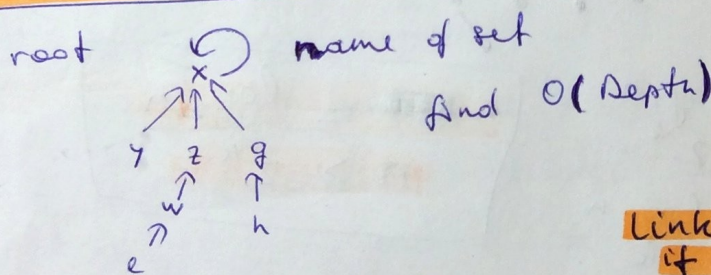 root name of set
x
find O(Depth)
y z g
w h
e
Link
if